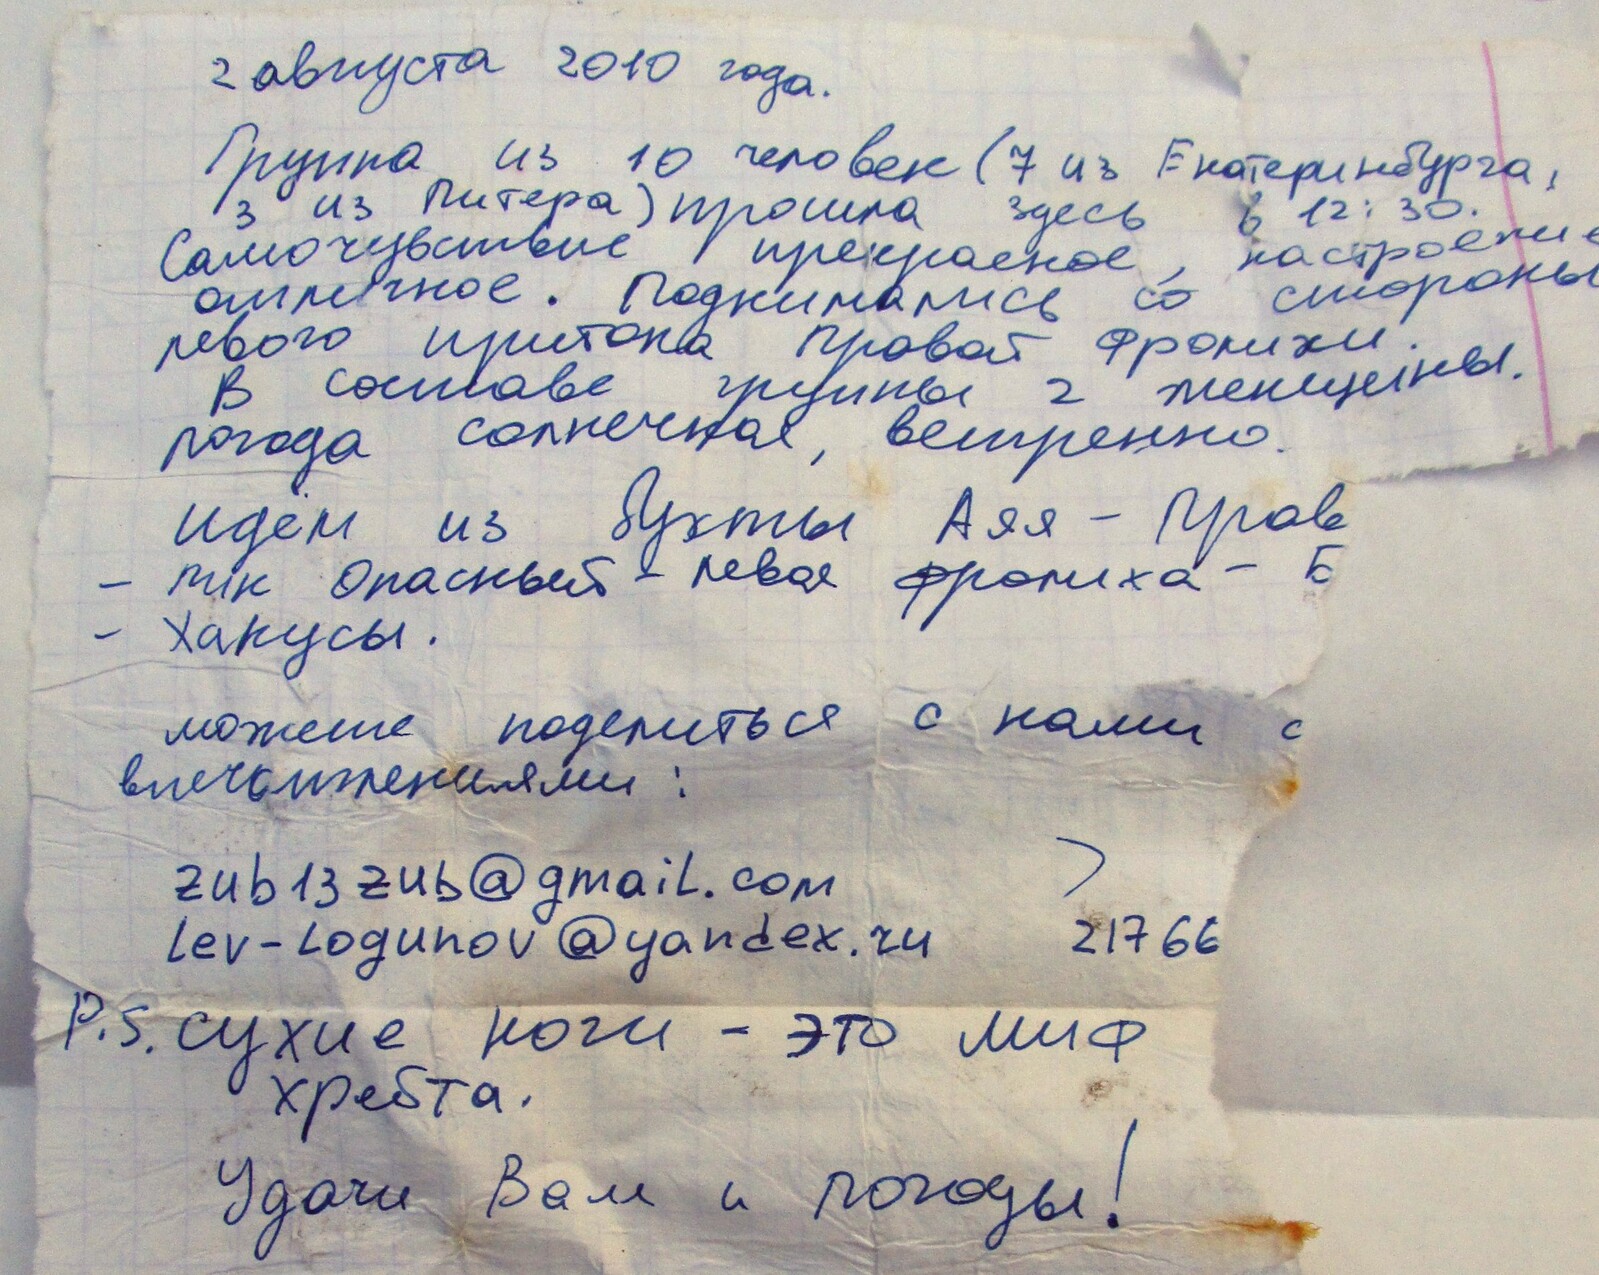 2 августа 2010 года.
Группа из 10 человек (7 из Екатеринбурга,
3 из Питера) прошла здесь в 12:30.
Самочувствие прекрасное, настроение
отличное. Поднимались со стороны
левого притока Правой Фролихи.
В составе группы 2 женщины.
погода солнечная, ветренно.
идём из бухты Аяя - Прав
- пик Опасный - Левая Фролиха - Б
- Хакусы.
можете поделиться с нами с
впечатлениями:
zub13zub@gmail.com
Lev-Logunov@yandex.ru 21766
P.S. сухие ноги - это миф
хребта.
Удачи Вам и погоды!